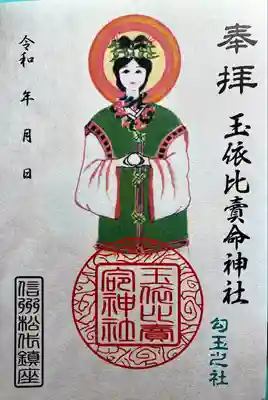 奉拝
玉依比賣命神社
勾玉之社
玉依比賣
命神社
令和　年　月　日
信州松代鎮座